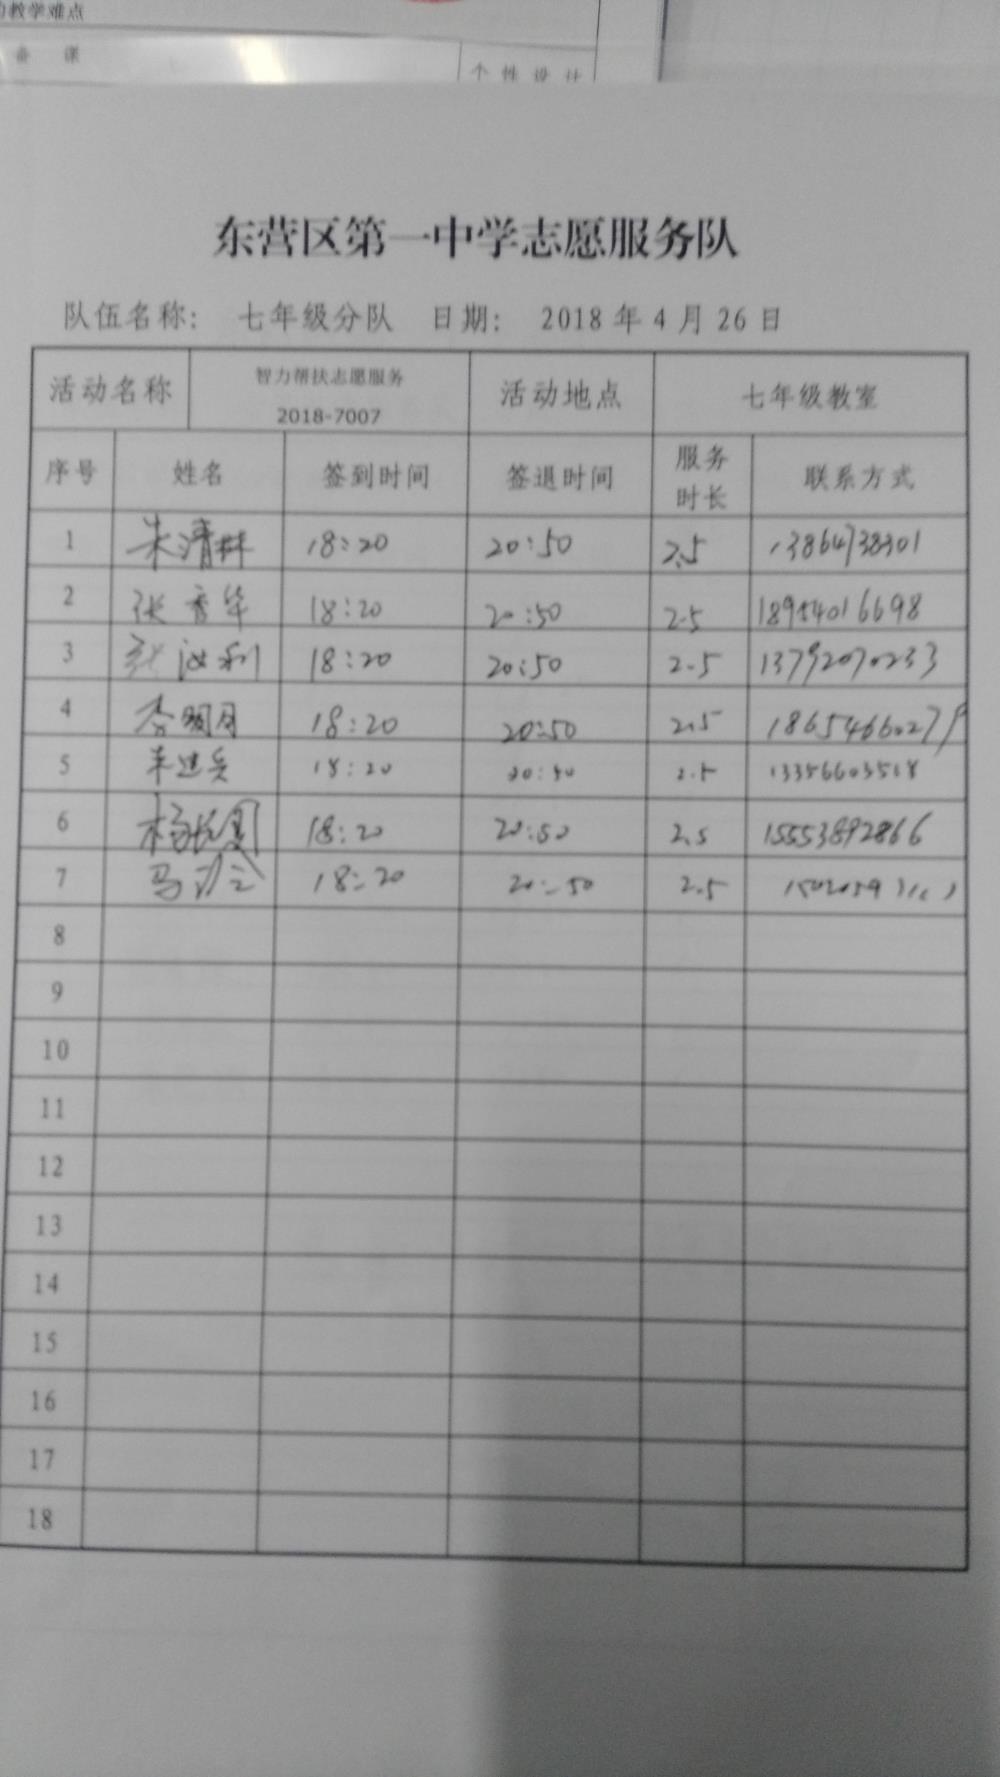 的教学难点
备 课
个 性 设 计
东营区第一中学志愿服务队
队伍名称： 七年级分队 日期： 2018 年 4 月 26 日
活动名称 智力帮扶志愿服务 2018-7007 活动地点 七年级教室
序号 姓名 签到时间 签退时间 服务时长 联系方式
1 朱清 18:20 20:50 2.5 13864738301
2 张秀华 18:20 20:50 2.5 18954016698
3 张 利 18:20 20:50 2.5 13792070233
4 李明月 18:20 20:50 2.5 18654660279
5 建兵 18:20 20:50 2.5 13356603518
6 杨 18:20 20:50 2.5 15553892866
7 马 18:20 20:50 2.5
8
9
10
11
12
13
14
15
16
17
18